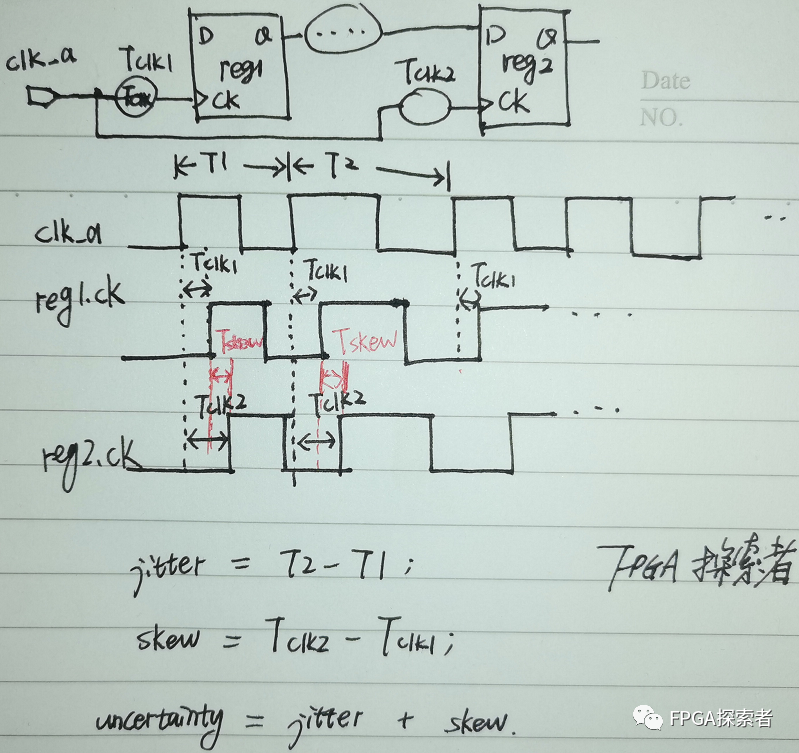 clk_a Tclk1 D Q reg1 CK .... Tclk2 D Q reg2 CK
Date
NO.
T1 T2
clk_a
Tclk1 Tclk1 Tclk1
reg1.ck
Tskew Tskew
Tclk2 Tclk2
reg2.ck
jitter = T2 - T1;
FPGA 探索者
skew = Tclk2 - Tclk1;
uncertainty = jitter + skew.
FPGA探索者